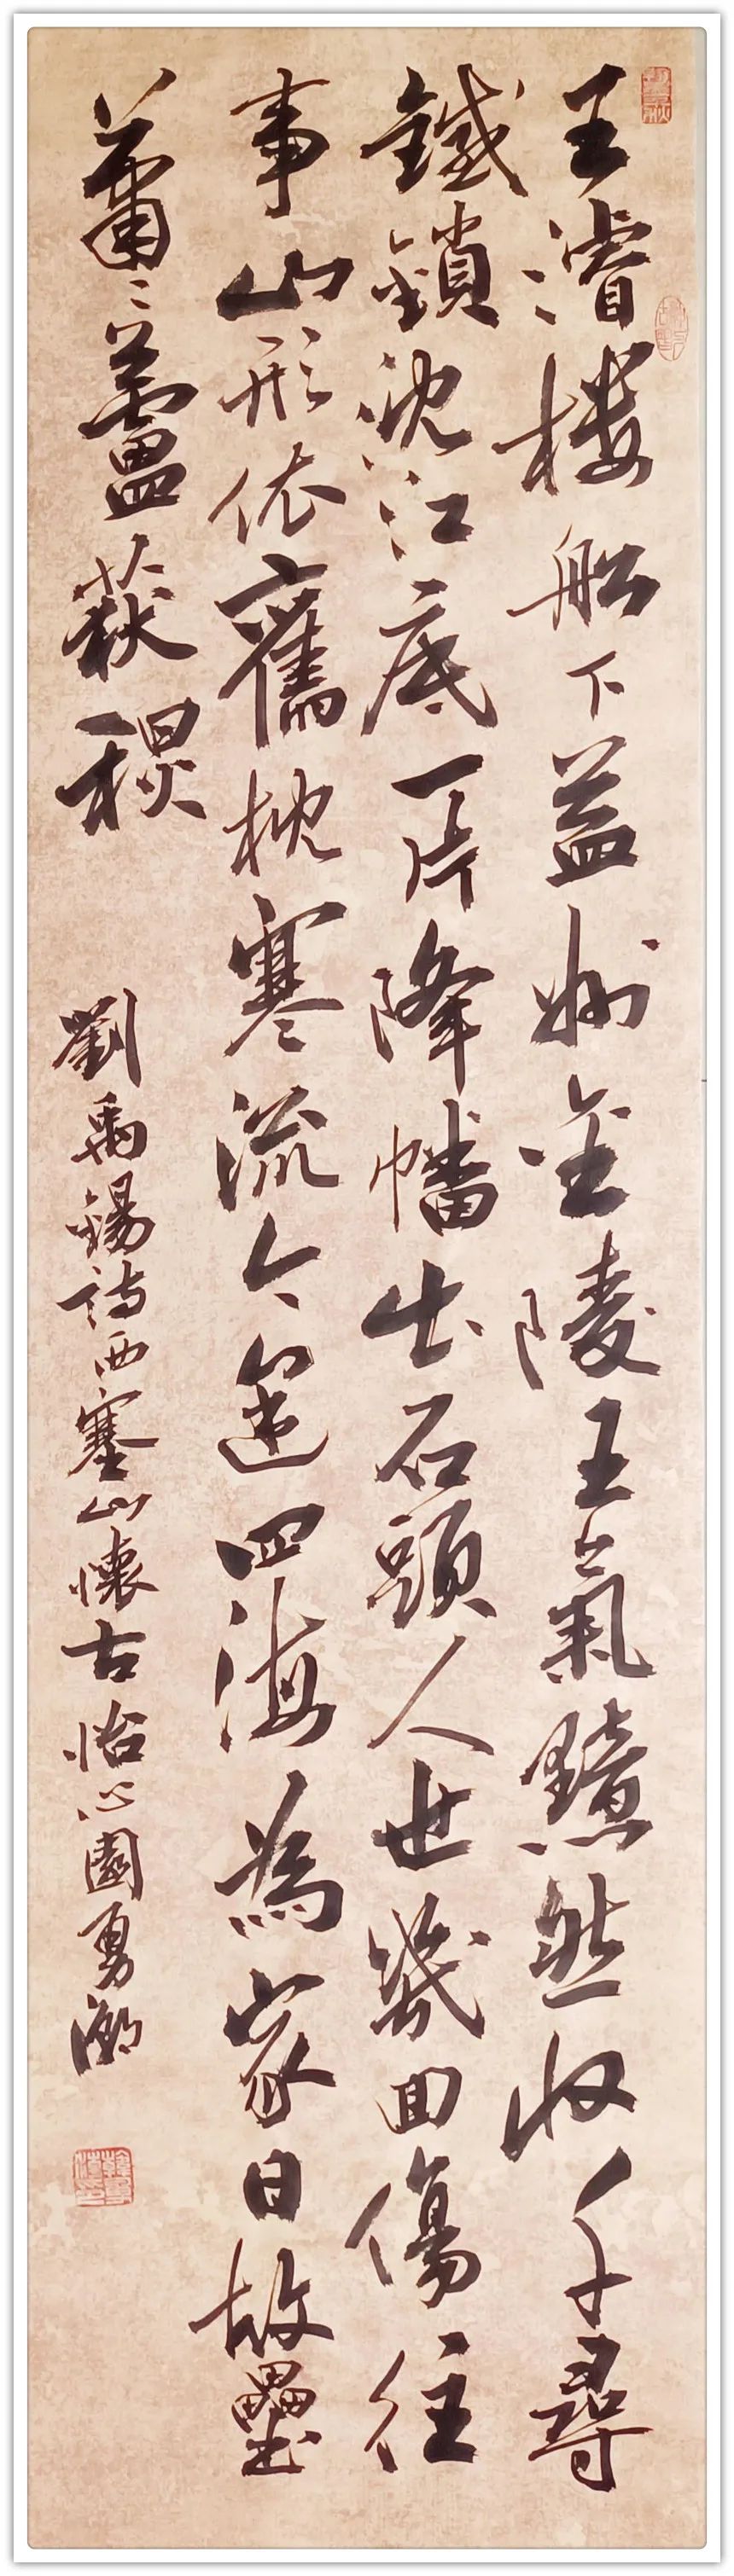 王濬楼船下益州金陵王氣黯然收千尋
鐵鎖沈江底一片降幡出石頭人世幾回傷往
事山形依舊枕寒流今逢四海為家日故壘
蕭〻蘆荻秋
劉禹錫詩西塞山懷古怡心園勇